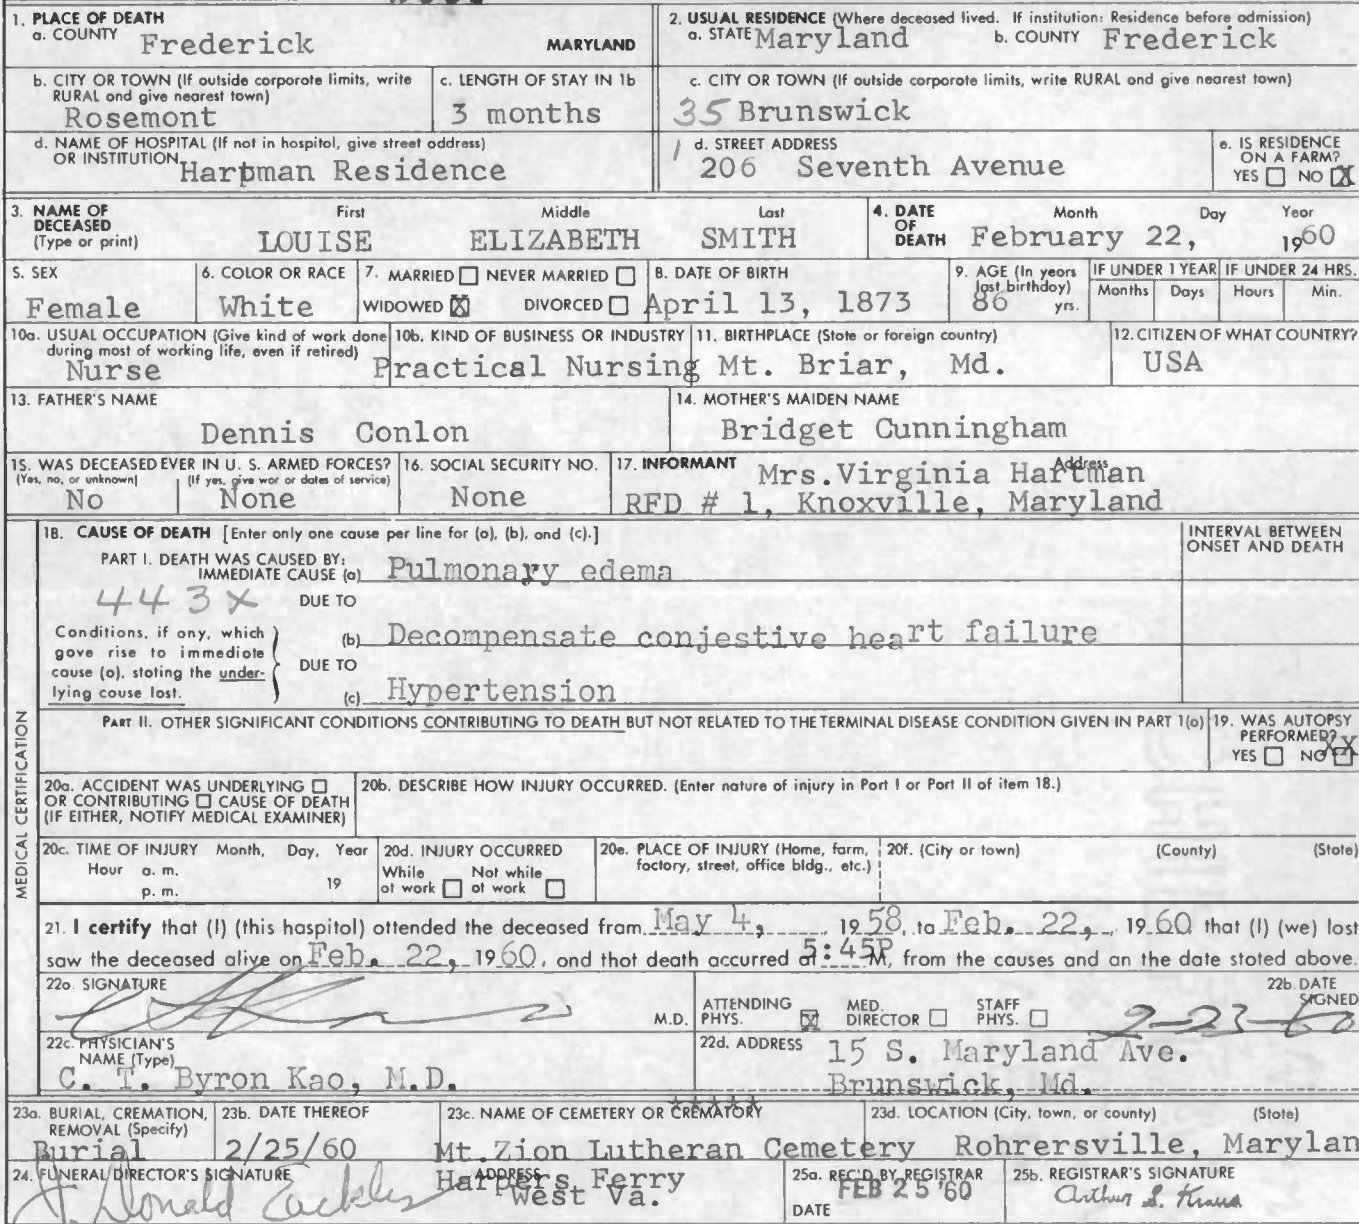 1. PLACE OF DEATH
a. COUNTY Frederick MARYLAND
2. USUAL RESIDENCE (Where deceased lived. If institution: Residence before admission)
a. STATE Maryland b. COUNTY Frederick
b. CITY OR TOWN (If outside corporate limits, write RURAL and give nearest town)
Rosemont
c. LENGTH OF STAY IN 1b
3 months
c. CITY OR TOWN (If outside corporate limits, write RURAL and give nearest town)
35 Brunswick
d. NAME OF HOSPITAL (If not in hospital, give street address)
OR INSTITUTION Hartman Residence
1 d. STREET ADDRESS
206 Seventh Avenue
e. IS RESIDENCE ON A FARM?
YES ☐ NO ☒
3. NAME OF DECEASED (Type or print)
First Middle Last
LOUISE ELIZABETH SMITH
4. DATE OF DEATH
Month Day Year
February 22, 1960
5. SEX
Female
6. COLOR OR RACE
White
7. MARRIED ☐ NEVER MARRIED ☐
WIDOWED ☒ DIVORCED ☐
8. DATE OF BIRTH
April 13, 1873
9. AGE (In years last birthday)
86 yrs.
IF UNDER 1 YEAR
Months Days
IF UNDER 24 HRS.
Hours Min.
10a. USUAL OCCUPATION (Give kind of work done during most of working life, even if retired)
Nurse
10b. KIND OF BUSINESS OR INDUSTRY
Practical Nursing
11. BIRTHPLACE (State or foreign country)
Mt. Briar, Md.
12. CITIZEN OF WHAT COUNTRY?
USA
13. FATHER'S NAME
Dennis Conlon
14. MOTHER'S MAIDEN NAME
Bridget Cunningham
15. WAS DECEASED EVER IN U. S. ARMED FORCES?
(Yes, no, or unknown) (If yes, give war or dates of service)
No None
16. SOCIAL SECURITY NO.
None
17. INFORMANT Address
Mrs.Virginia Hartman
RFD # 1, Knoxville, Maryland
18. CAUSE OF DEATH [Enter only one cause per line for (a), (b), and (c).]
INTERVAL BETWEEN ONSET AND DEATH
PART I. DEATH WAS CAUSED BY:
IMMEDIATE CAUSE (a) Pulmonary edema
443X DUE TO
Conditions, if any, which gave rise to immediate cause (a), stating the underlying cause last.
(b) Decompensate conjestive heart failure
DUE TO
(c) Hypertension
MEDICAL CERTIFICATION
PART II. OTHER SIGNIFICANT CONDITIONS CONTRIBUTING TO DEATH BUT NOT RELATED TO THE TERMINAL DISEASE CONDITION GIVEN IN PART 1(a)
19. WAS AUTOPSY PERFORMED?
YES ☐ NO ☐ XX
20a. ACCIDENT WAS UNDERLYING ☐
OR CONTRIBUTING ☐ CAUSE OF DEATH
(IF EITHER, NOTIFY MEDICAL EXAMINER)
20b. DESCRIBE HOW INJURY OCCURRED. (Enter nature of injury in Part I or Part II of item 18.)
20c. TIME OF INJURY Month, Day, Year
Hour a. m.
p. m. 19
20d. INJURY OCCURRED
While at work ☐ Not while at work ☐
20e. PLACE OF INJURY (Home, farm, factory, street, office bldg., etc.)
20f. (City or town) (County) (State)
21. I certify that (I) (this hospital) attended the deceased from May 4, 1958, to Feb. 22, 1960 that (I) (we) last
saw the deceased alive on Feb. 22, 1960, and that death occurred at 5:45P M, from the causes and on the date stated above.
22a. SIGNATURE
M.D.
ATTENDING PHYS. ☒ MED. DIRECTOR ☐ STAFF PHYS. ☐
22b. DATE SIGNED
2-23-60
22c. PHYSICIAN'S NAME (Type)
C. T. Byron Kao, M.D.
22d. ADDRESS 15 S. Maryland Ave.
Brunswick, Md.
23a. BURIAL, CREMATION, REMOVAL (Specify)
Burial
23b. DATE THEREOF
2/25/60
23c. NAME OF CEMETERY OR CREMATORY
Mt.Zion Lutheran Cemetery
23d. LOCATION (City, town, or county) (State)
Rohrersville, Marylan
24. FUNERAL DIRECTOR'S SIGNATURE
J. Donald Eackles
ADDRESS
Harpers Ferry
West Va.
25a. REC'D BY REGISTRAR
DATE FEB 25 '60
25b. REGISTRAR'S SIGNATURE
Arthur S. Kraus